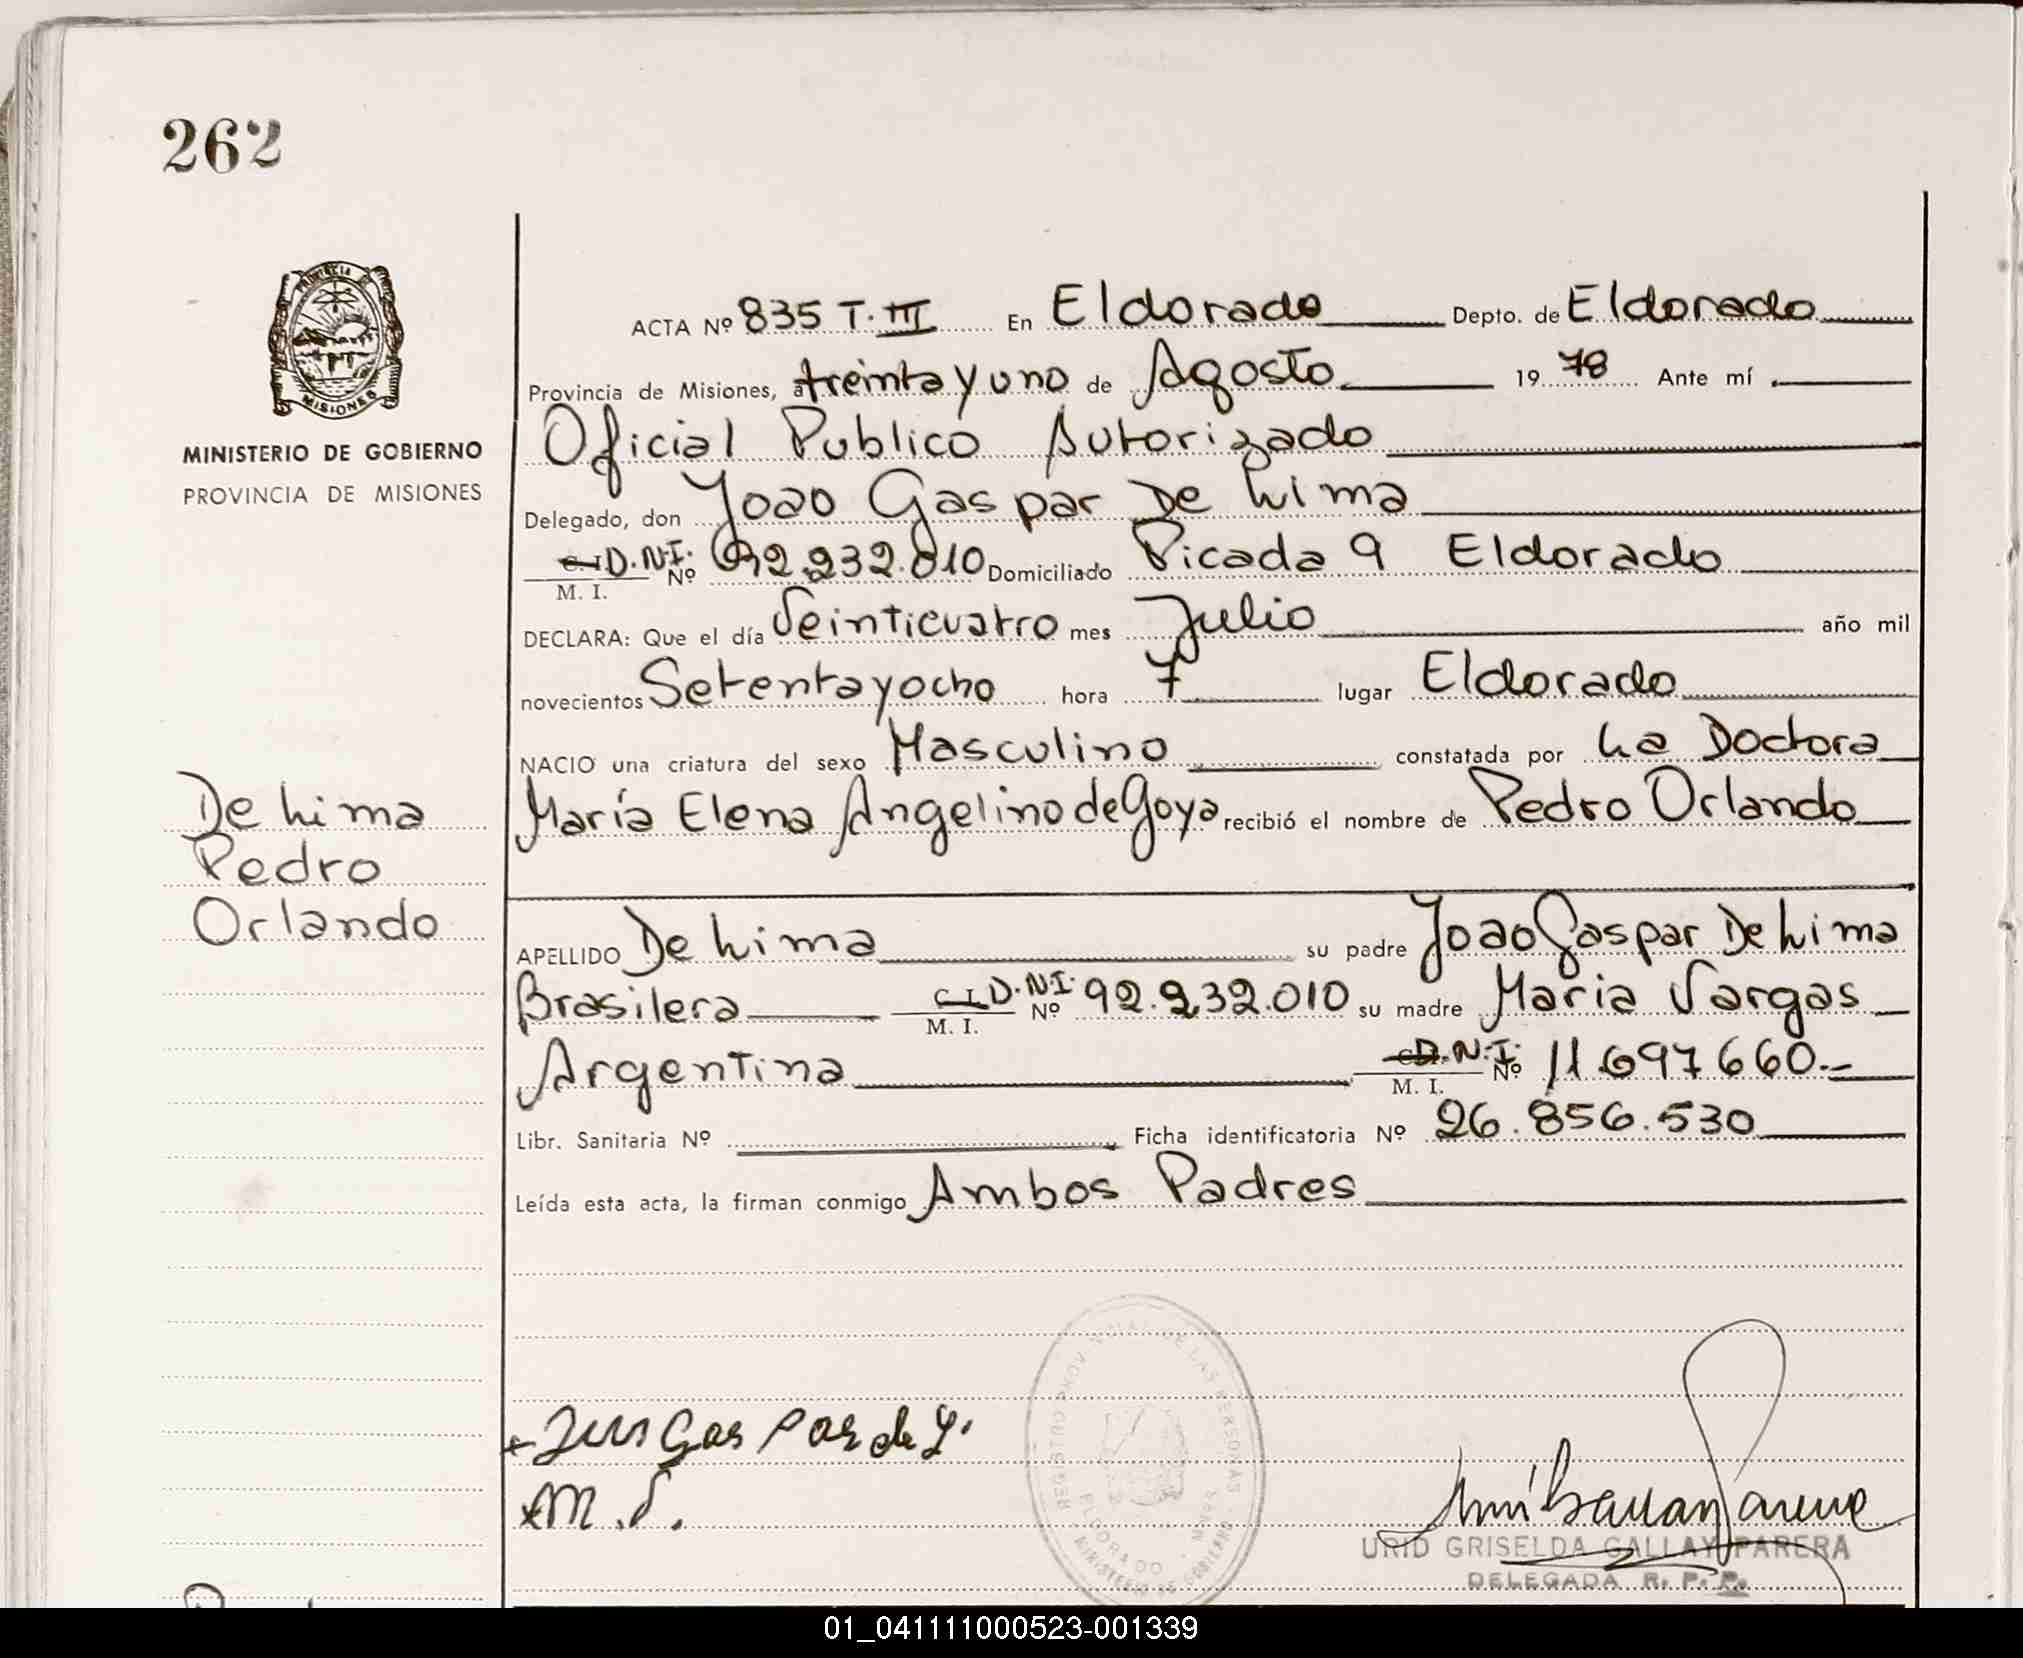 262
MINISTERIO DE GOBIERNO
PROVINCIA DE MISIONES
PROVINCIA
MISIONES
ACTA Nº 835 T. III En Eldorado Depto. de Eldorado
Provincia de Misiones, a treinta y uno de Agosto 19 78 Ante mí
Oficial Publico Autorizado
Delegado, don Joao Gaspar De Lima
D.N.I. M. I. Nº 92.232.010 Domiciliado Picada 9 Eldorado
DECLARA: Que el día Veinticuatro mes Julio año mil
novecientos Setenta y ocho hora 7 lugar Eldorado
NACIO una criatura del sexo Masculino constatada por La Doctora
María Elena Angelino de Goya recibió el nombre de Pedro Orlando
De Lima
Pedro
Orlando
APELLIDO De Lima su padre Joao Gaspar De Lima
Brasilera C. I. D.N.I. M. I. Nº 92.232.010 su madre Maria Vargas
Argentina D.N.I. M. I. Nº 11.697660.-
Libr. Sanitaria Nº Ficha identificatoria Nº 26.856.530
Leída esta acta, la firman conmigo Ambos Padres
REGISTRO PROVINCIAL DE LAS PERSONAS
ELDORADO
MINISTERIO DE GOBIERNO
Gaspar de L.
M. V.
GRISELDA GALLAY PARERA
DELEGADA R. P. P.
01_041111000523-001339